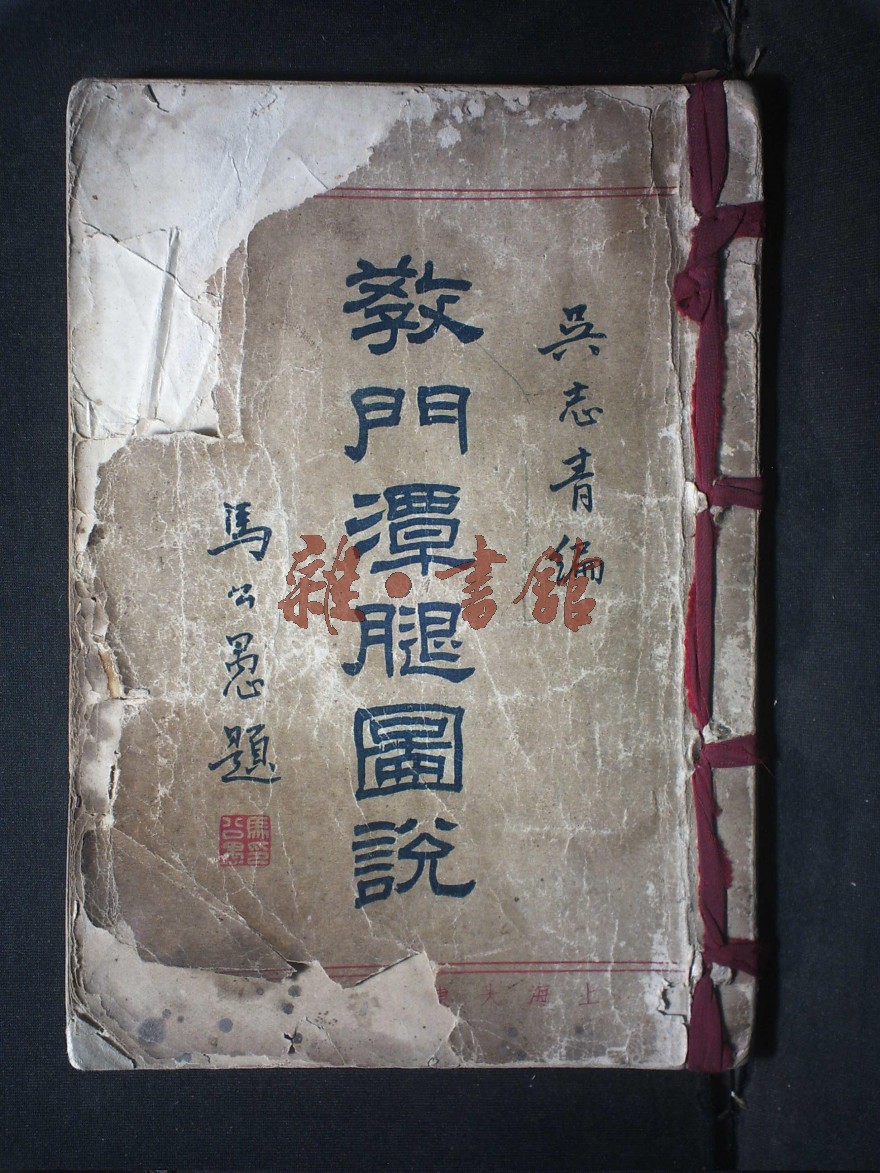 吳志青編
教門潭腿圖說
馬公愚題
馬公愚印
上海大
雜·書館